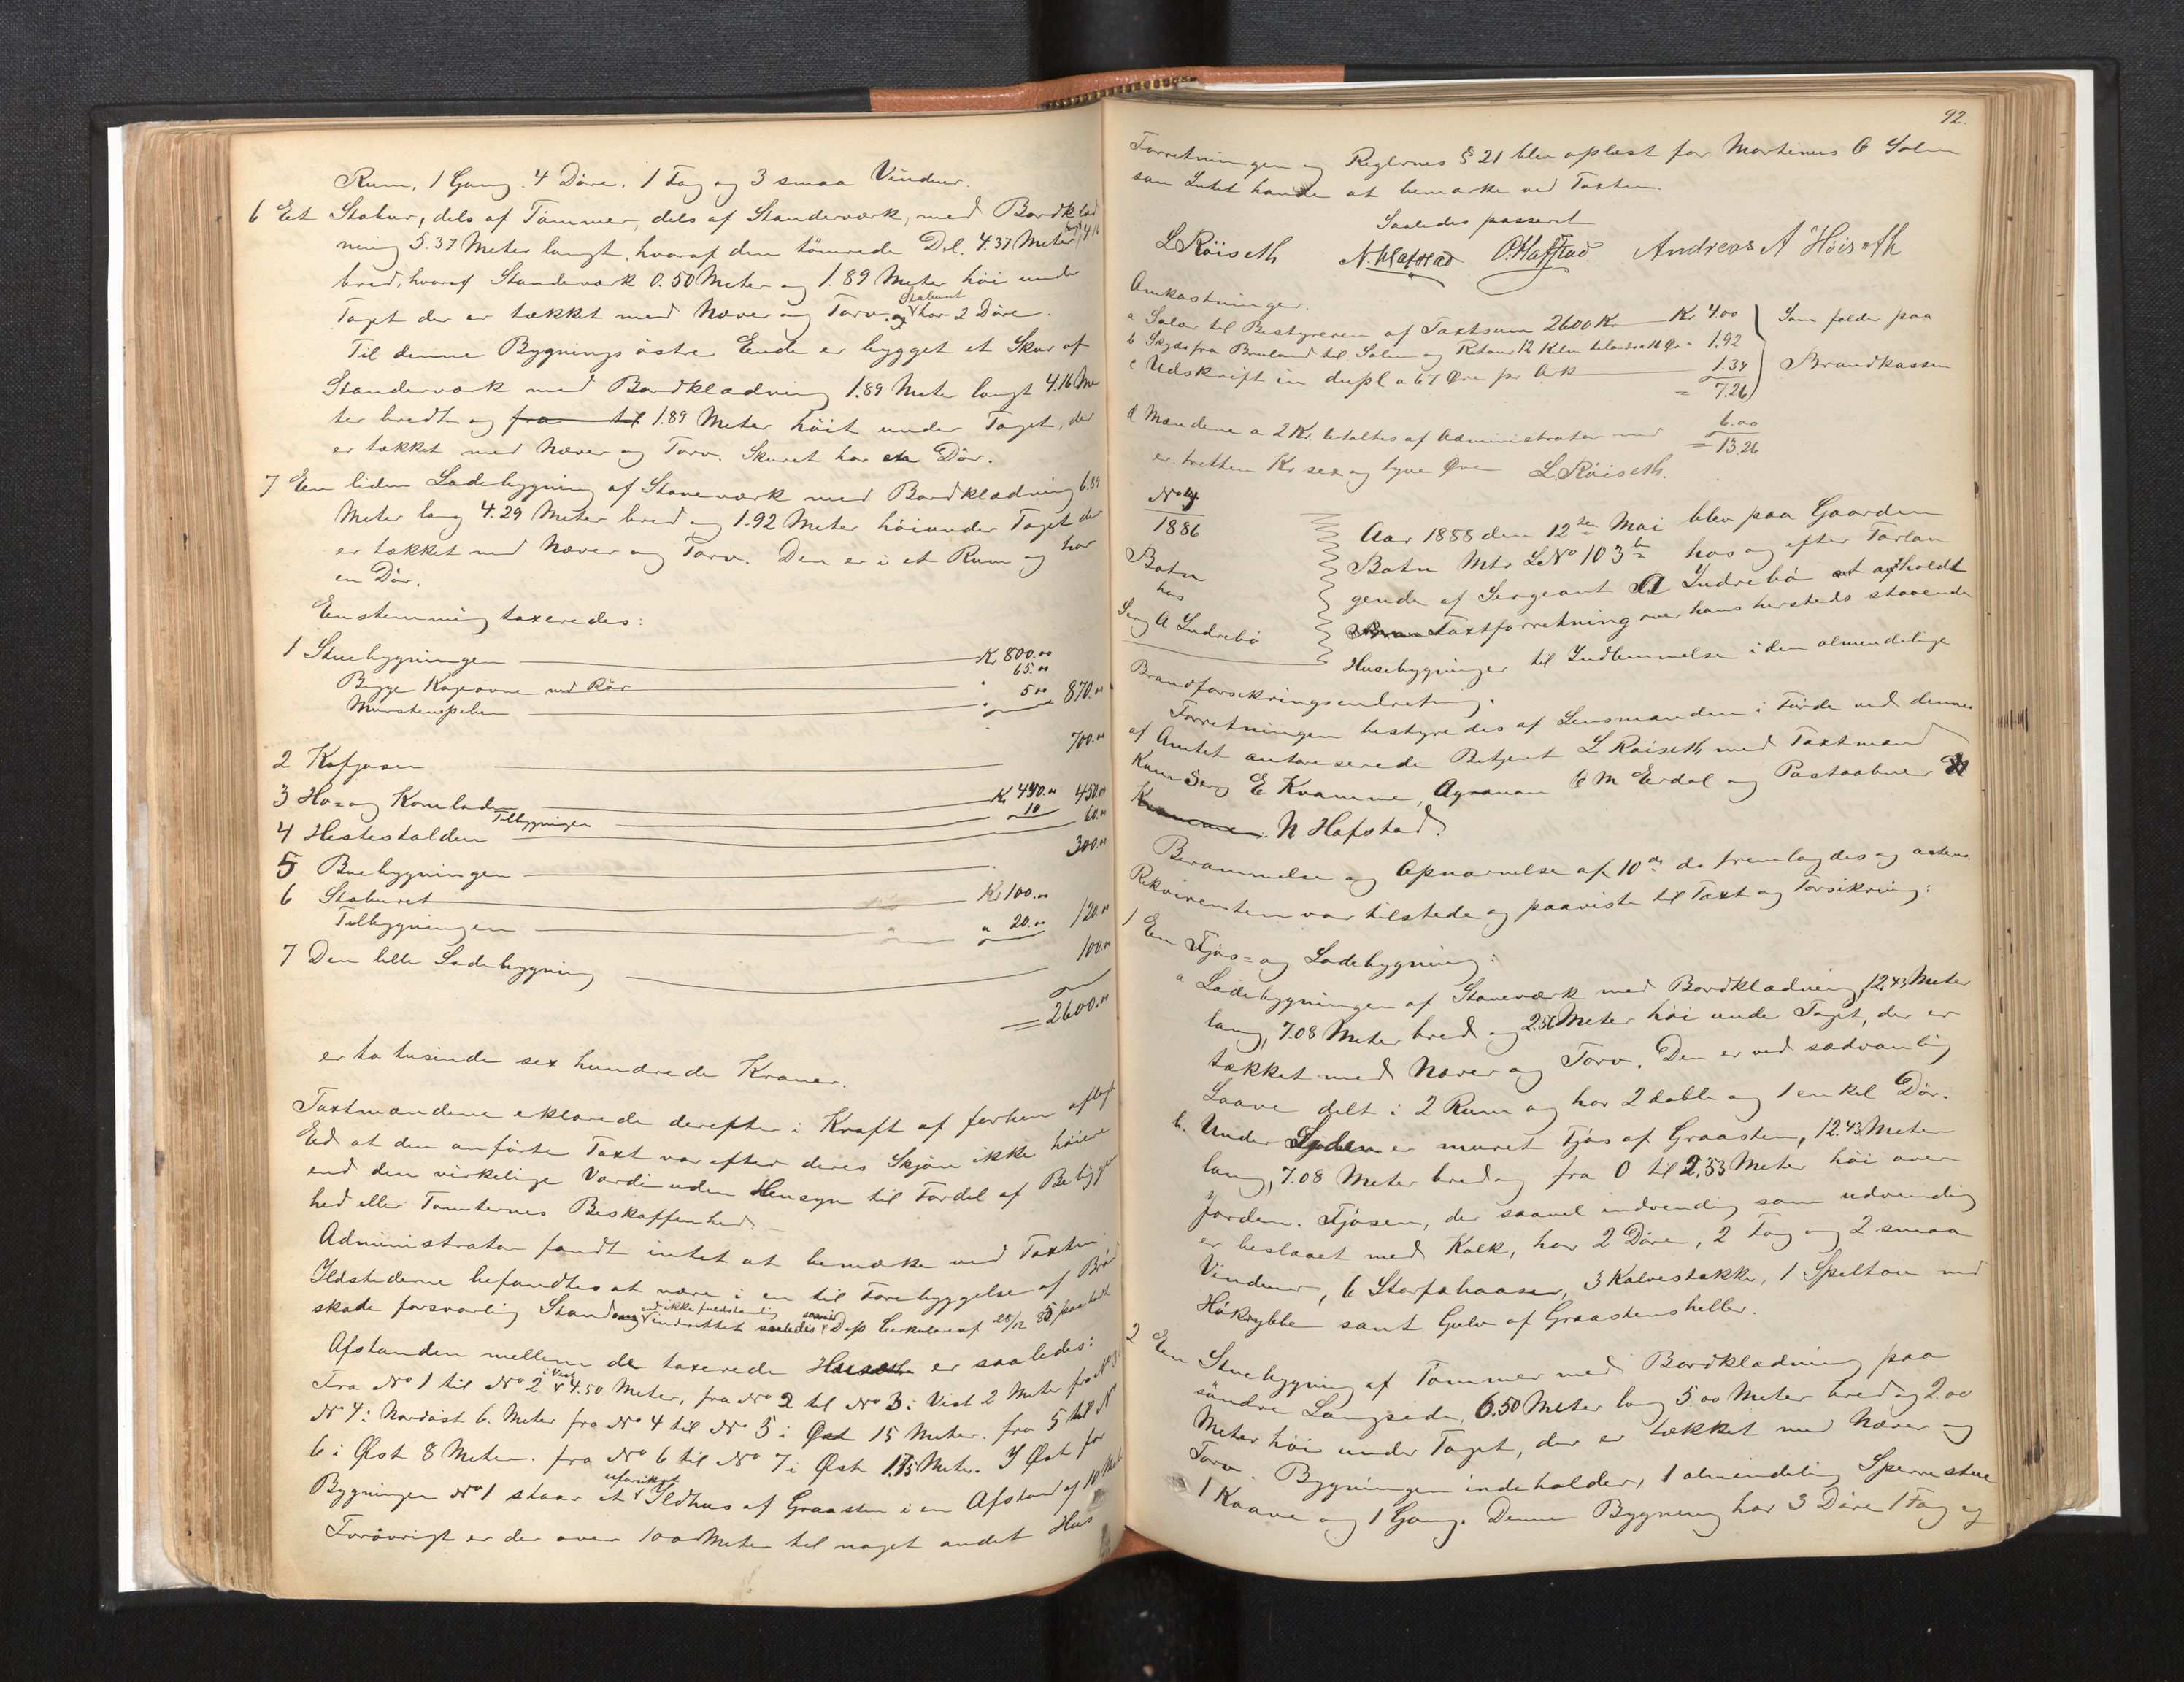 Rum, 1 Gang. 4 Döre. 1 Fag og 3 smaa Vinduer.
6 Et Stabur, dels af Tömmer, dels af Standerværk, med Bordklæd
ning 5.37 Meter langt, hvoraf den tömrede Del. 4.37 Meter langt 4.16
bred, hvoraf Standerværk 0.50 Meter og 1.89 Meter höi under
Taget der er tækket med Næver og Torv. og Staburet har 2 Döre.
Til denne Bygnings östre Ende er bygget et Skur af
Standerværk med Bordklædning 1.89 Meter langt 4.16 Me
ter bredt og fra til 1.89 Meter höit under Taget, der
er tækket med Næver og Torv. Skuret har en Dör.
7 En liden Ladebygning af Staveværk med Bordklædning 6.89
Meter lang 4.29 Meter bred og 1.92 Meter höi under Taget der
er tækket med Næver og Torv. Den er i et Rum og har
en Dör.
Eenstemmig taxeredes:
1 Stuebygningen Kr 800.00
Begge Kageovne med Rör " 65.00
Murstenspiben " 5.00 870.00
2 Kofjosen 700.00
3 Hö- og Kornladen Kr 440.00 450.00
Tilbygningen 10
4 Hestestalden 60.00
5 Buebygningen 300.00
6 Staburet Kr 100.00
Tilbygningen " 20.00 120.00
7 Den lille Ladebygning 100.00
= 2600.00
er to tusinde sex hundrede Kroner.
Taxtmændene erklærede derefter i Kraft af forhen aflagt
Ed at den anförte Taxt var efter deres Skjön ikke höiere
end den virkelige Værdi uden Hensyn til Fordel af Beliggen
hed eller Tomternes Beskaffenhed.
Administrator fandt intet at bemærke ved Taxten.
Ildstederne befandtes at være i en til Forebyggelse af Brand
skade forsvarlig Stand og om end ikke fuldstændig indrettet saaledes som Dep Cirkulære af 28/12 85 paabudt
Afstanden mellem de taxerede Huse er saaledes:
Fra No 1 til No 2 i Vest 4.50 Meter, fra No 2 til No 3 i Vest 2 Meter fra No 3
No 4 i Nordöst 6. Meter fra No 4 til No 5 i Öst 15 Meter. fra 5 til No
6 i Öst 8 Meter. fra No 6 til No 7 i Öst 1.75 Meter. I Öst for
Bygningen No 1 staar et uforsikret Ildhus af Graasten i en Afstand af 10 Met
Forövrigt er der over 100 Meter til noget andet Hus
92.
Forretningen og Reglernes § 21 blev oplæst for Martinus O Solem
som Intet havde at bemærke ved Taxten.
Saaledes passeret
L Röiseth N. Hafstad O. Hafstad. Andreas A Höiseth
Omkostninger.
a Salær til Bestyreren af Taxtsum 2600 Kr Kr 4.00
b Skyds fra Bruland til Solem og Retour 12 Kilm tillands a 16 Öre " 1.92
c Udskrift in dupl a 67 Öre pr Ark 1.34
= 7.26
Som falder paa
Brandkassen
d Mændene a 2 Kr. betaltes af Administrator med 6.00
= 13.26
er tretten Kr sex og tyve Öre L Röiseth.
No 4.
1886
Botn
hos
Serg A Indrebö
Aar 1888 den 12te Mai blev paa Gaarden
Botn Mtr LNo 103 b hos og efter Forlan
gende af Sergeant A Indrebö afholdt
Taxtforretning over hans hersteds staaende
Husebygninger til Indlemmelse i den almendelige
Brandforsikringsindretning.
Forretningen bestyredes af Lensmanden i Förde ved dennes
af Amtet autoriserede Betjent L Röiseth med Taxtmænd
Serg E Kvamme, Agronom O M Erdal og Postaabner
N Hafstad.
Berammelse og Opnævnelse af 10de ds fremlagdes og acteres.
Rekvirenten var tilstede og paaviste til Taxt og Forsikring:
1 En Fjös- og Ladebygning:
a Ladebygningen af Staveværk med Bordklædning 12.43 Meter
lang, 7.08 Meter bred og 2.56 Meter höi under Taget, der er
tækket med Næver og Torv. Den er ved sædvanlig
Laave delt i 2 Rum og har 2 doble og 1 enkel Dör.
b. Under Laden er muret Fjös af Graasten, 12.43 Meter
lang, 7.08 Meter bred og fra 0 til 2,53 Meter höi over
Jorden. Fjösen, der saavel indvendig som udvendig
er beslaaet med Kalk, har 2 Döre, 2 Fag og 2 smaa
Vinduer, 6 Storfæbaaser, 3 Kalvestakke, 1 Speltou med
Hökrybbe samt Gulv af Graastensheller.
2 En Stuebygning af Tömmer med Bordklædning paa
söndre Langside, 6.50 Meter lang 5.00 Meter bred og 2.00
Meter höi under Taget, der er tækket med Næver og
Torv. Bygningen indeholder, 1 almindelig Sperrestue
1 Kaave og 1 Gang. Denne Bygning har 3 Döre 1 Fag og